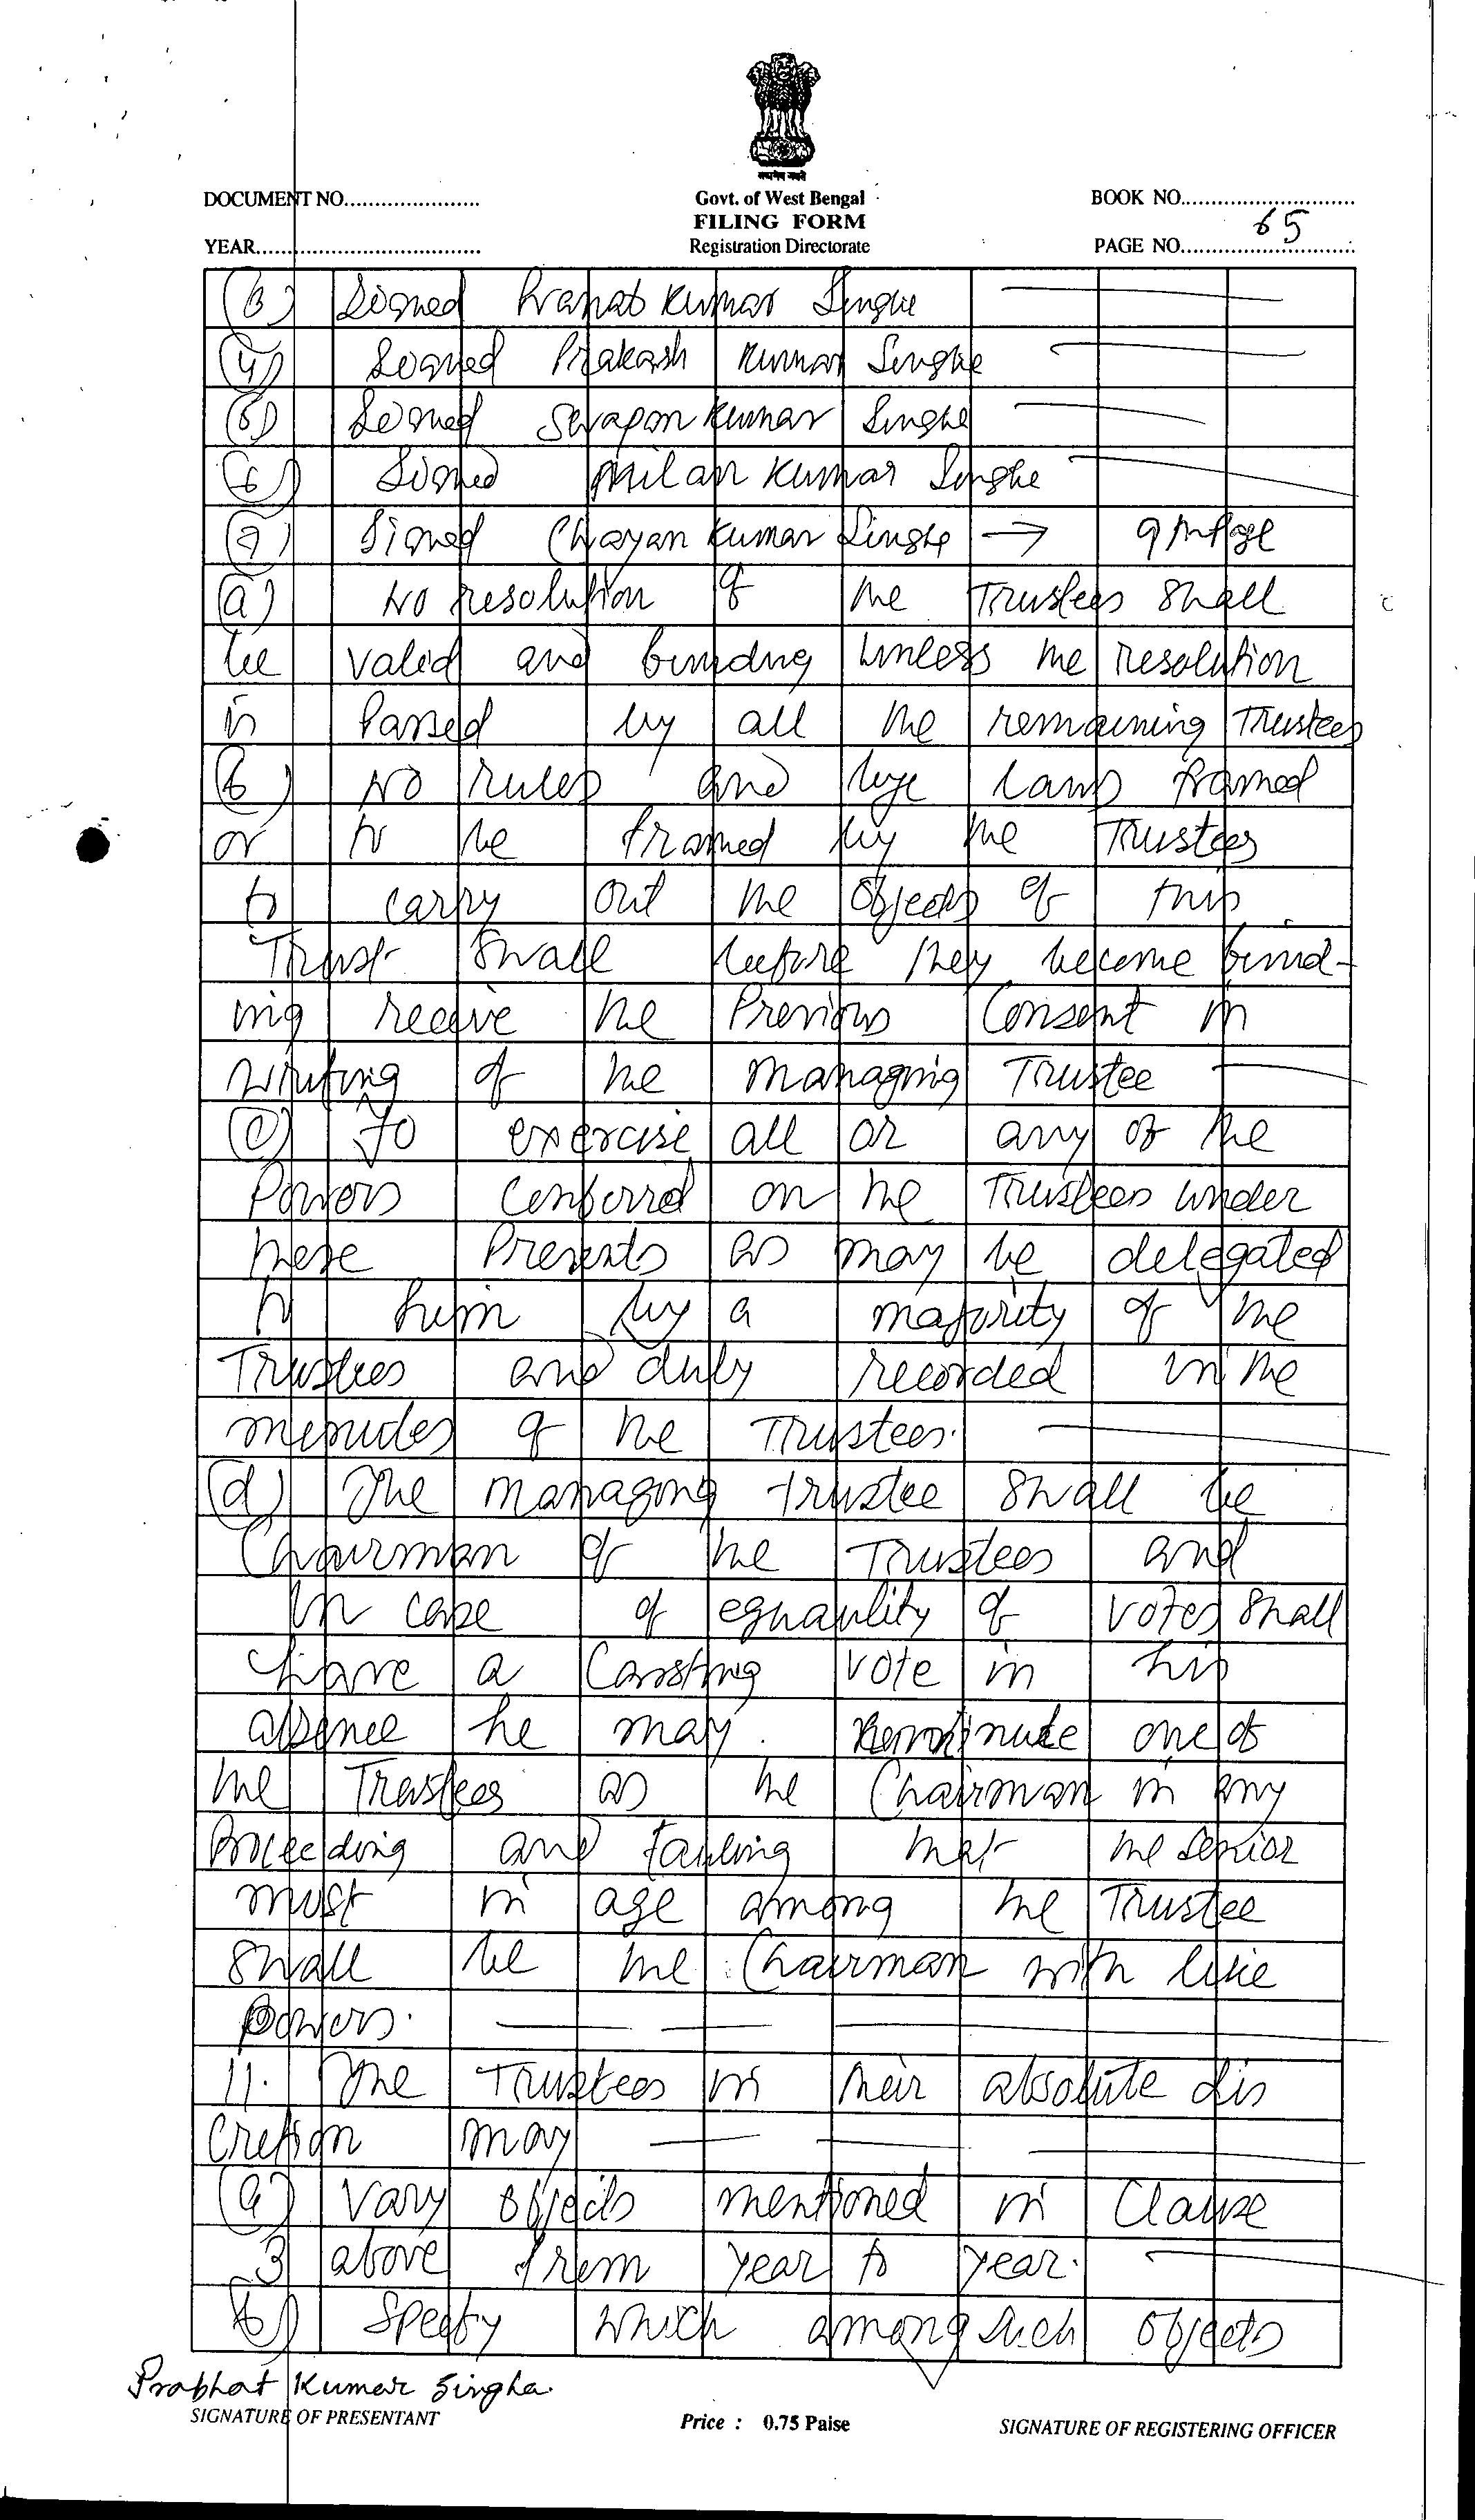 सत्यमेव जयते
DOCUMENT NO.......................
Govt. of West Bengal
BOOK NO.............................
FILING FORM
65
YEAR......................................
Registration Directorate
PAGE NO.............................
(3) Signed Pranab Kumar Singha
(4) Signed Prakash Kumar Singha
(5) Signed Swapan Kumar Singha
(6) Signed Milan Kumar Singha
(7) Signed Chayan Kumar Singha →
(a) No resolution of the Trustees shall
be valid and binding unless the resolution
is Passed by all the remaining Trustees
(b) No rules and bye laws framed
or to be framed by the Trustees
to carry out the objects of this
Trust shall before they become bind-
ing receive the Previous Consent in
writing of the managing Trustee
(c) To exercise all or any of the
Powers conferred on the Trustees under
these Presents as may be delegated
to him by a majority of the
Trustees and duly recorded in the
minutes of the Trustees.
(d) The managing trustee shall be
Chairman of the Trustees and
in case of equality of votes shall
have a Casting vote in his
absence he may nominate one of
the Trustees as the Chairman in any
Proceeding and failing that the senior
most in age among the Trustee
shall be the Chairman with like
Powers.
11. The Trustees in their absolute dis
cretion may
(a) vary objects mentioned in Clause
3 above from year to year.
(b) Specify which among such objects
Prabhat Kumar Singha.
SIGNATURE OF PRESENTANT
Price : 0.75 Paise
SIGNATURE OF REGISTERING OFFICER